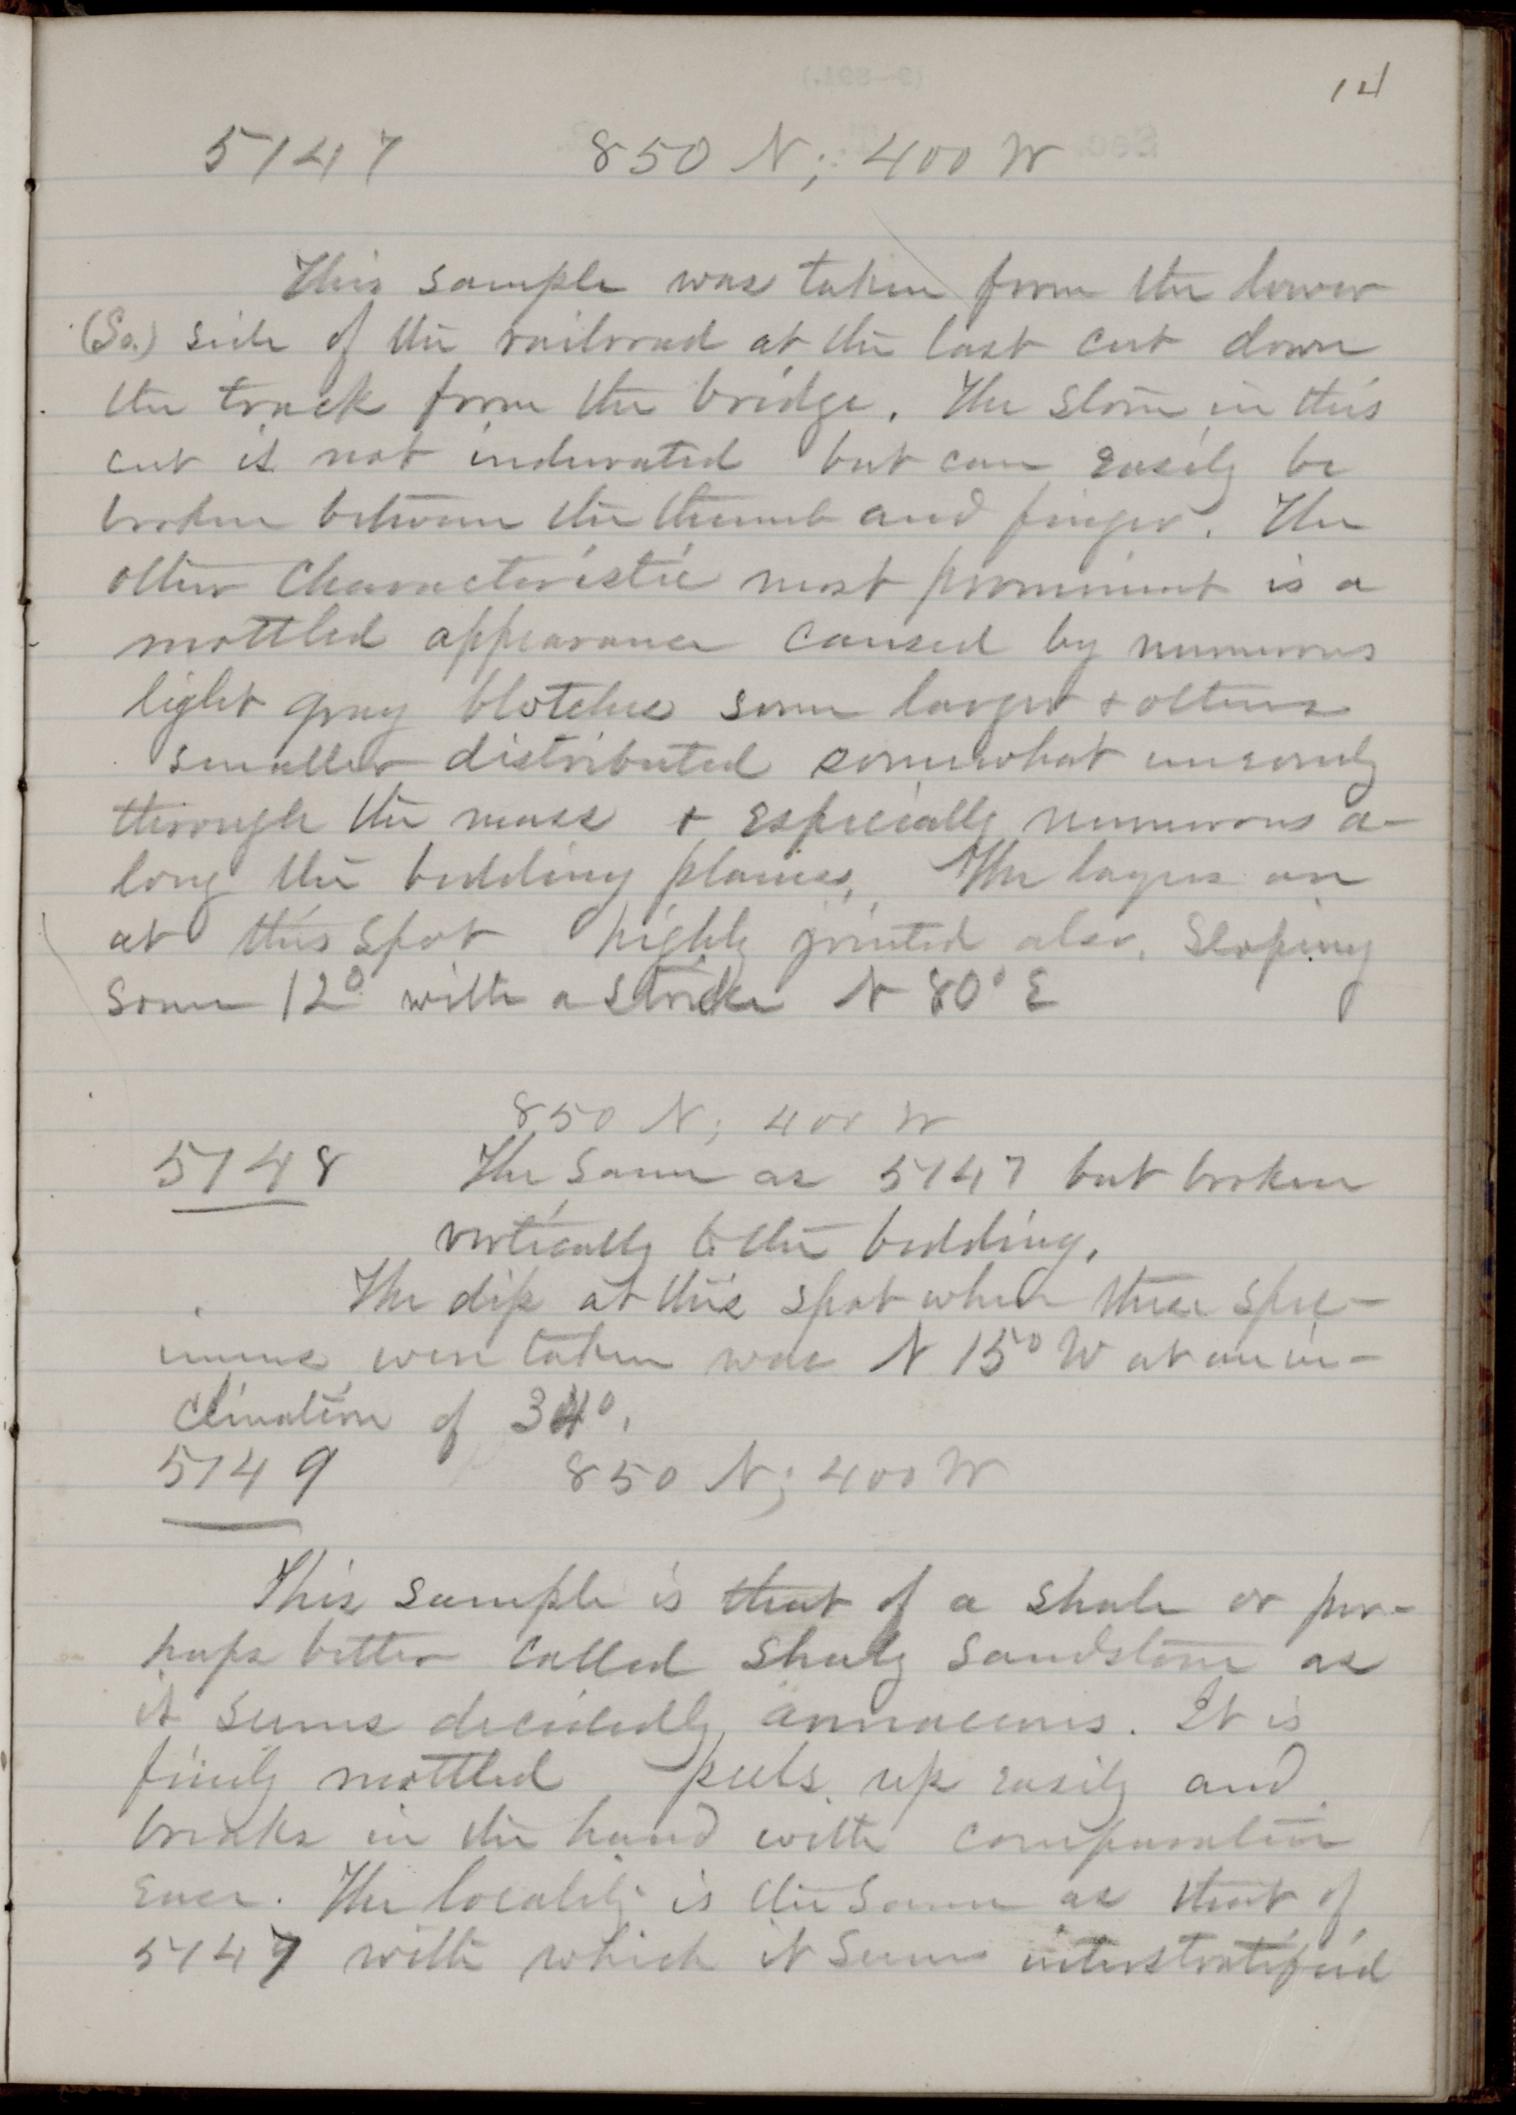 14
5147 850 N; 400 W
This sample was taken from the lower
(So.) side of the railroad at the last cut down
the track from the bridge. The stone in this
cut is not indurated but can easily be
broken between the thumb and finger. The
other characteristic most prominent is a
mottled appearance caused by numerous
light gray blotches some larger + others
smaller distributed somewhat unevenly
through the mass + especially numerous a-
long the bedding planes. The layers are
at this spot highly jointed also, sloping
some 12° with a strike N 80° E
850 N; 400 W
5148 The same as 5147 but broken
vertically to the bedding.
The dip at this spot where these spec-
imens were taken was N 15° W at an in-
clination of 34°.
5149 850 N; 400 W
This sample is that of a shale or per-
haps better called shaly sandstone as
it seems decidedly arenaceous. It is
finely mottled peels up easily and
breaks in the hand with comparative
ease. The locality is the same as that of
5147 with which it seems interstratified